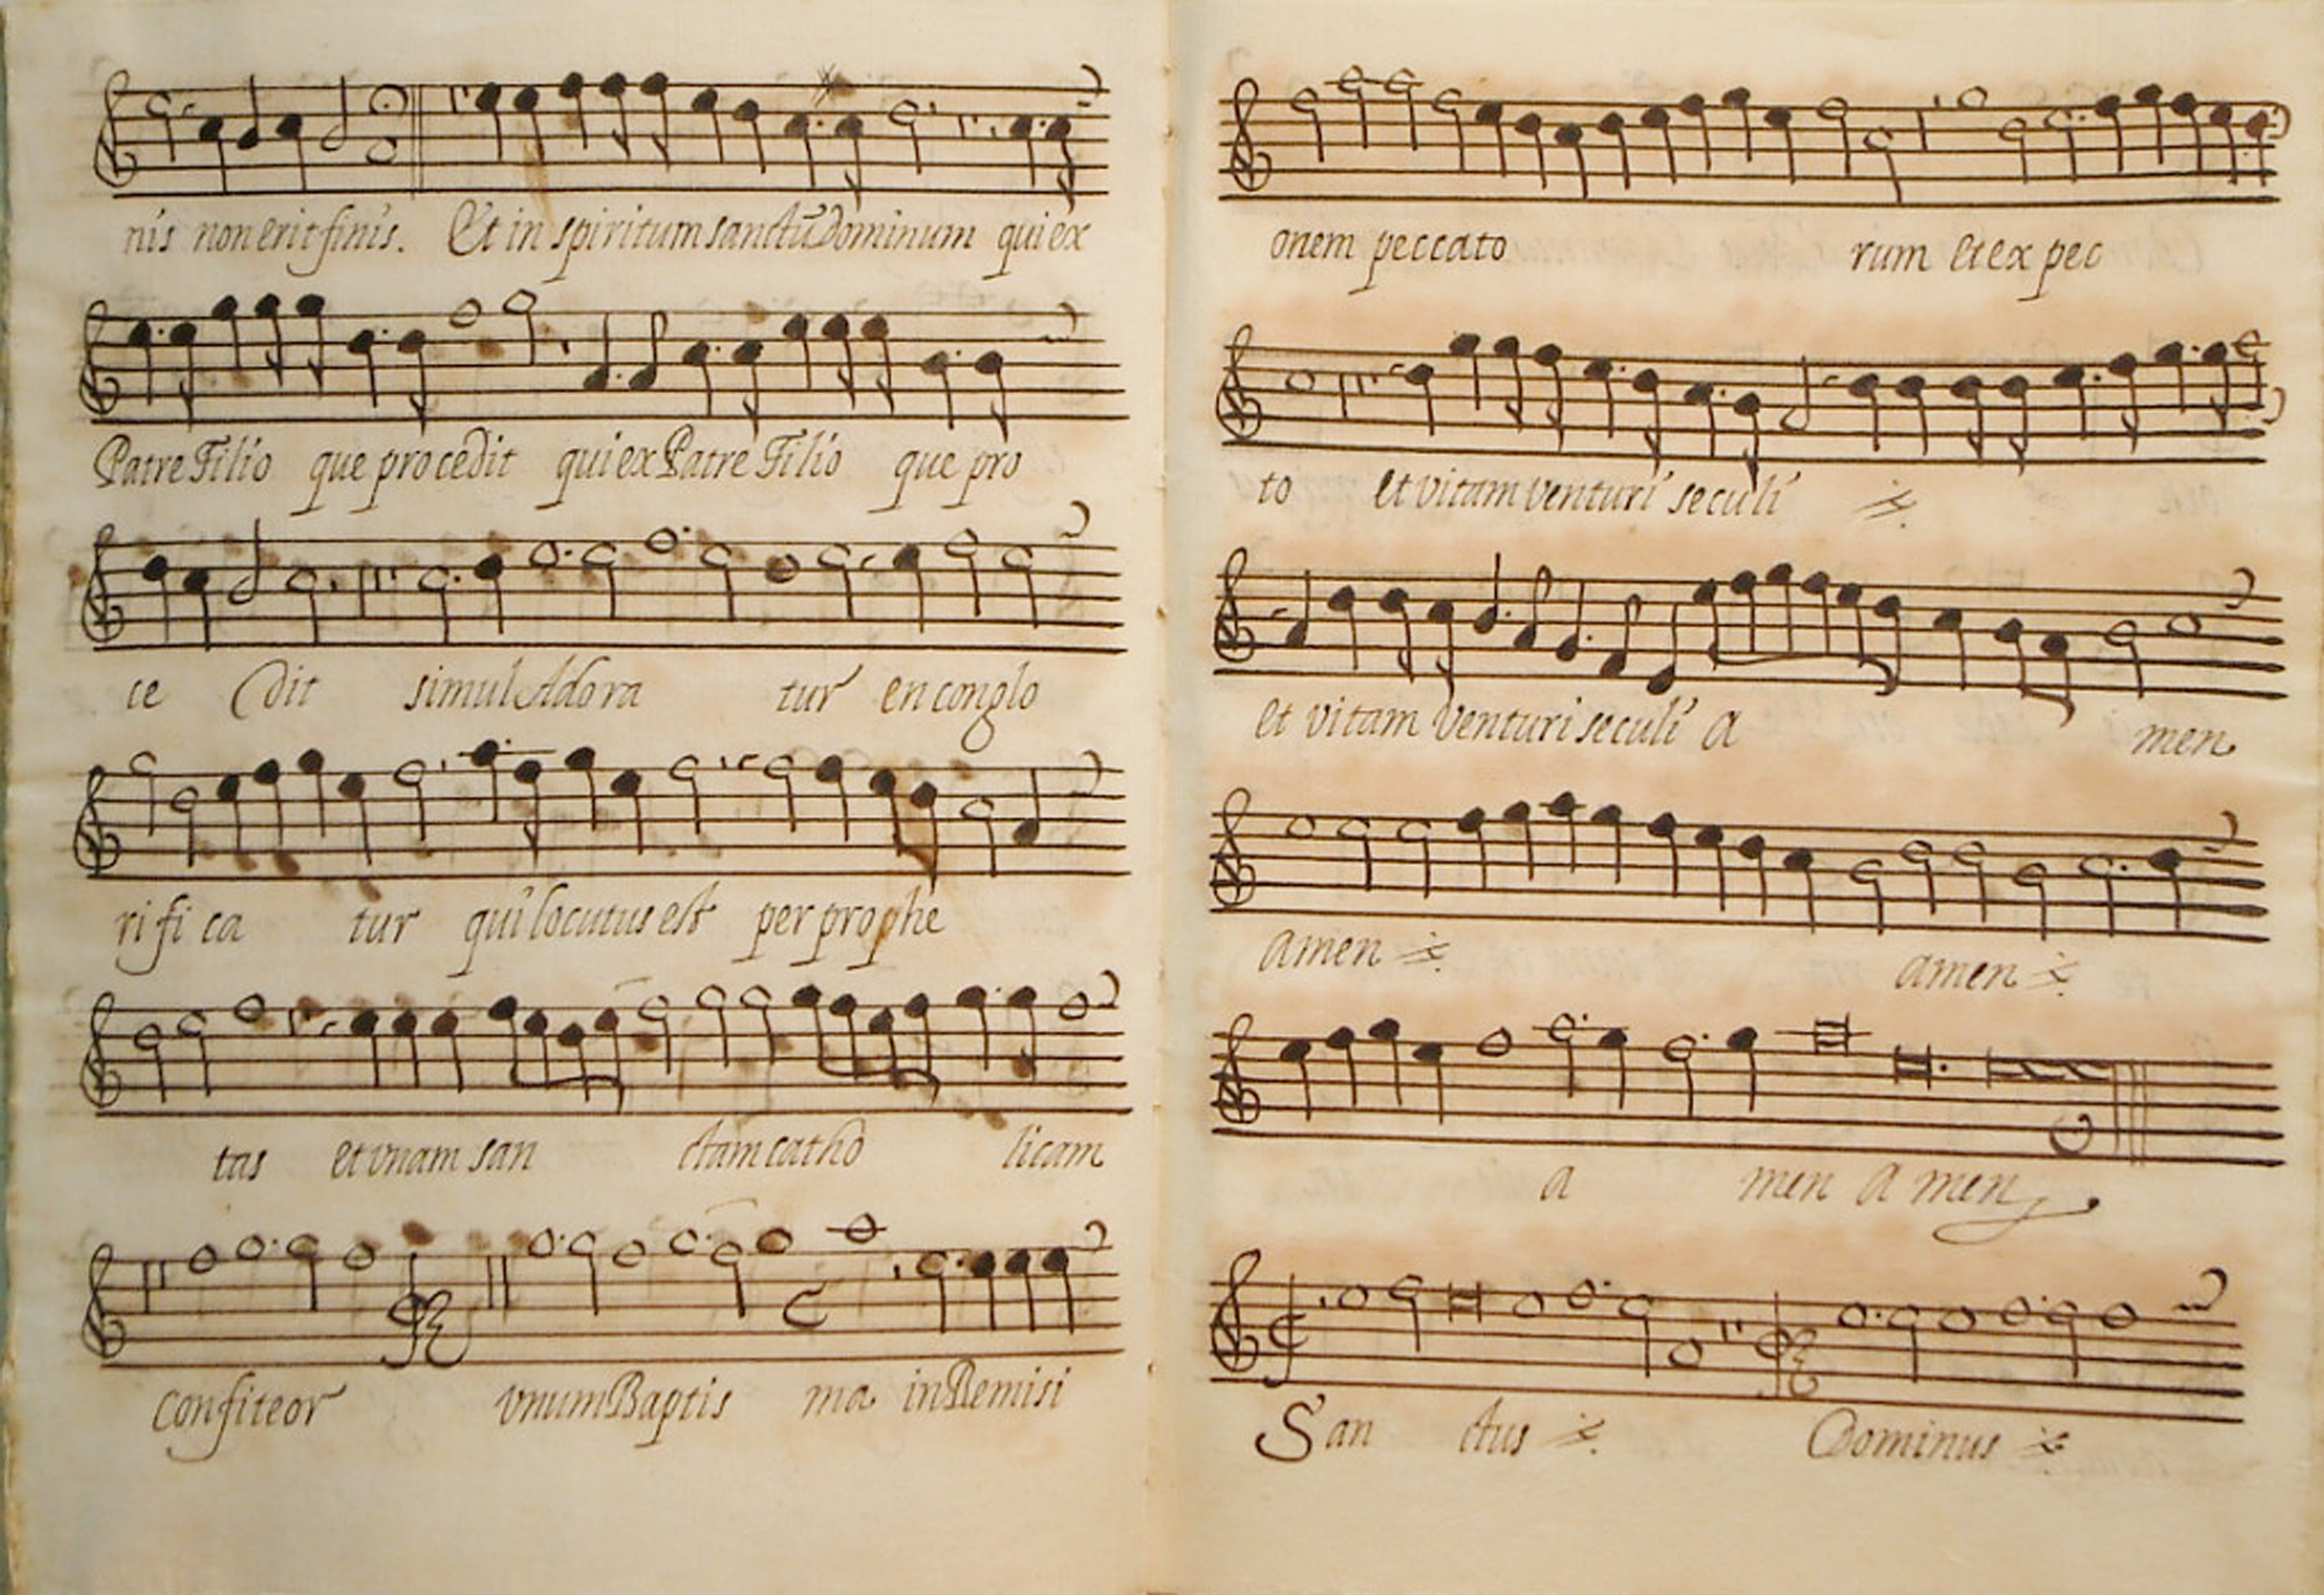 nis non erit finis. Et in spiritum sanctũ dominum qui ex
Patre Filio que procedit qui ex Patre Filio que pro
ce dit simul Adora tur en conglo
ri fi ca tur qui locutus est per prophe
tas et vnam san ctam catho licam
confiteor vnum Baptis ma in Remisi
onem peccato rum et ex pec
to et vitam venturi seculi
et vitam venturi seculi a men
amen amen
a men a men
San ctus Dominus